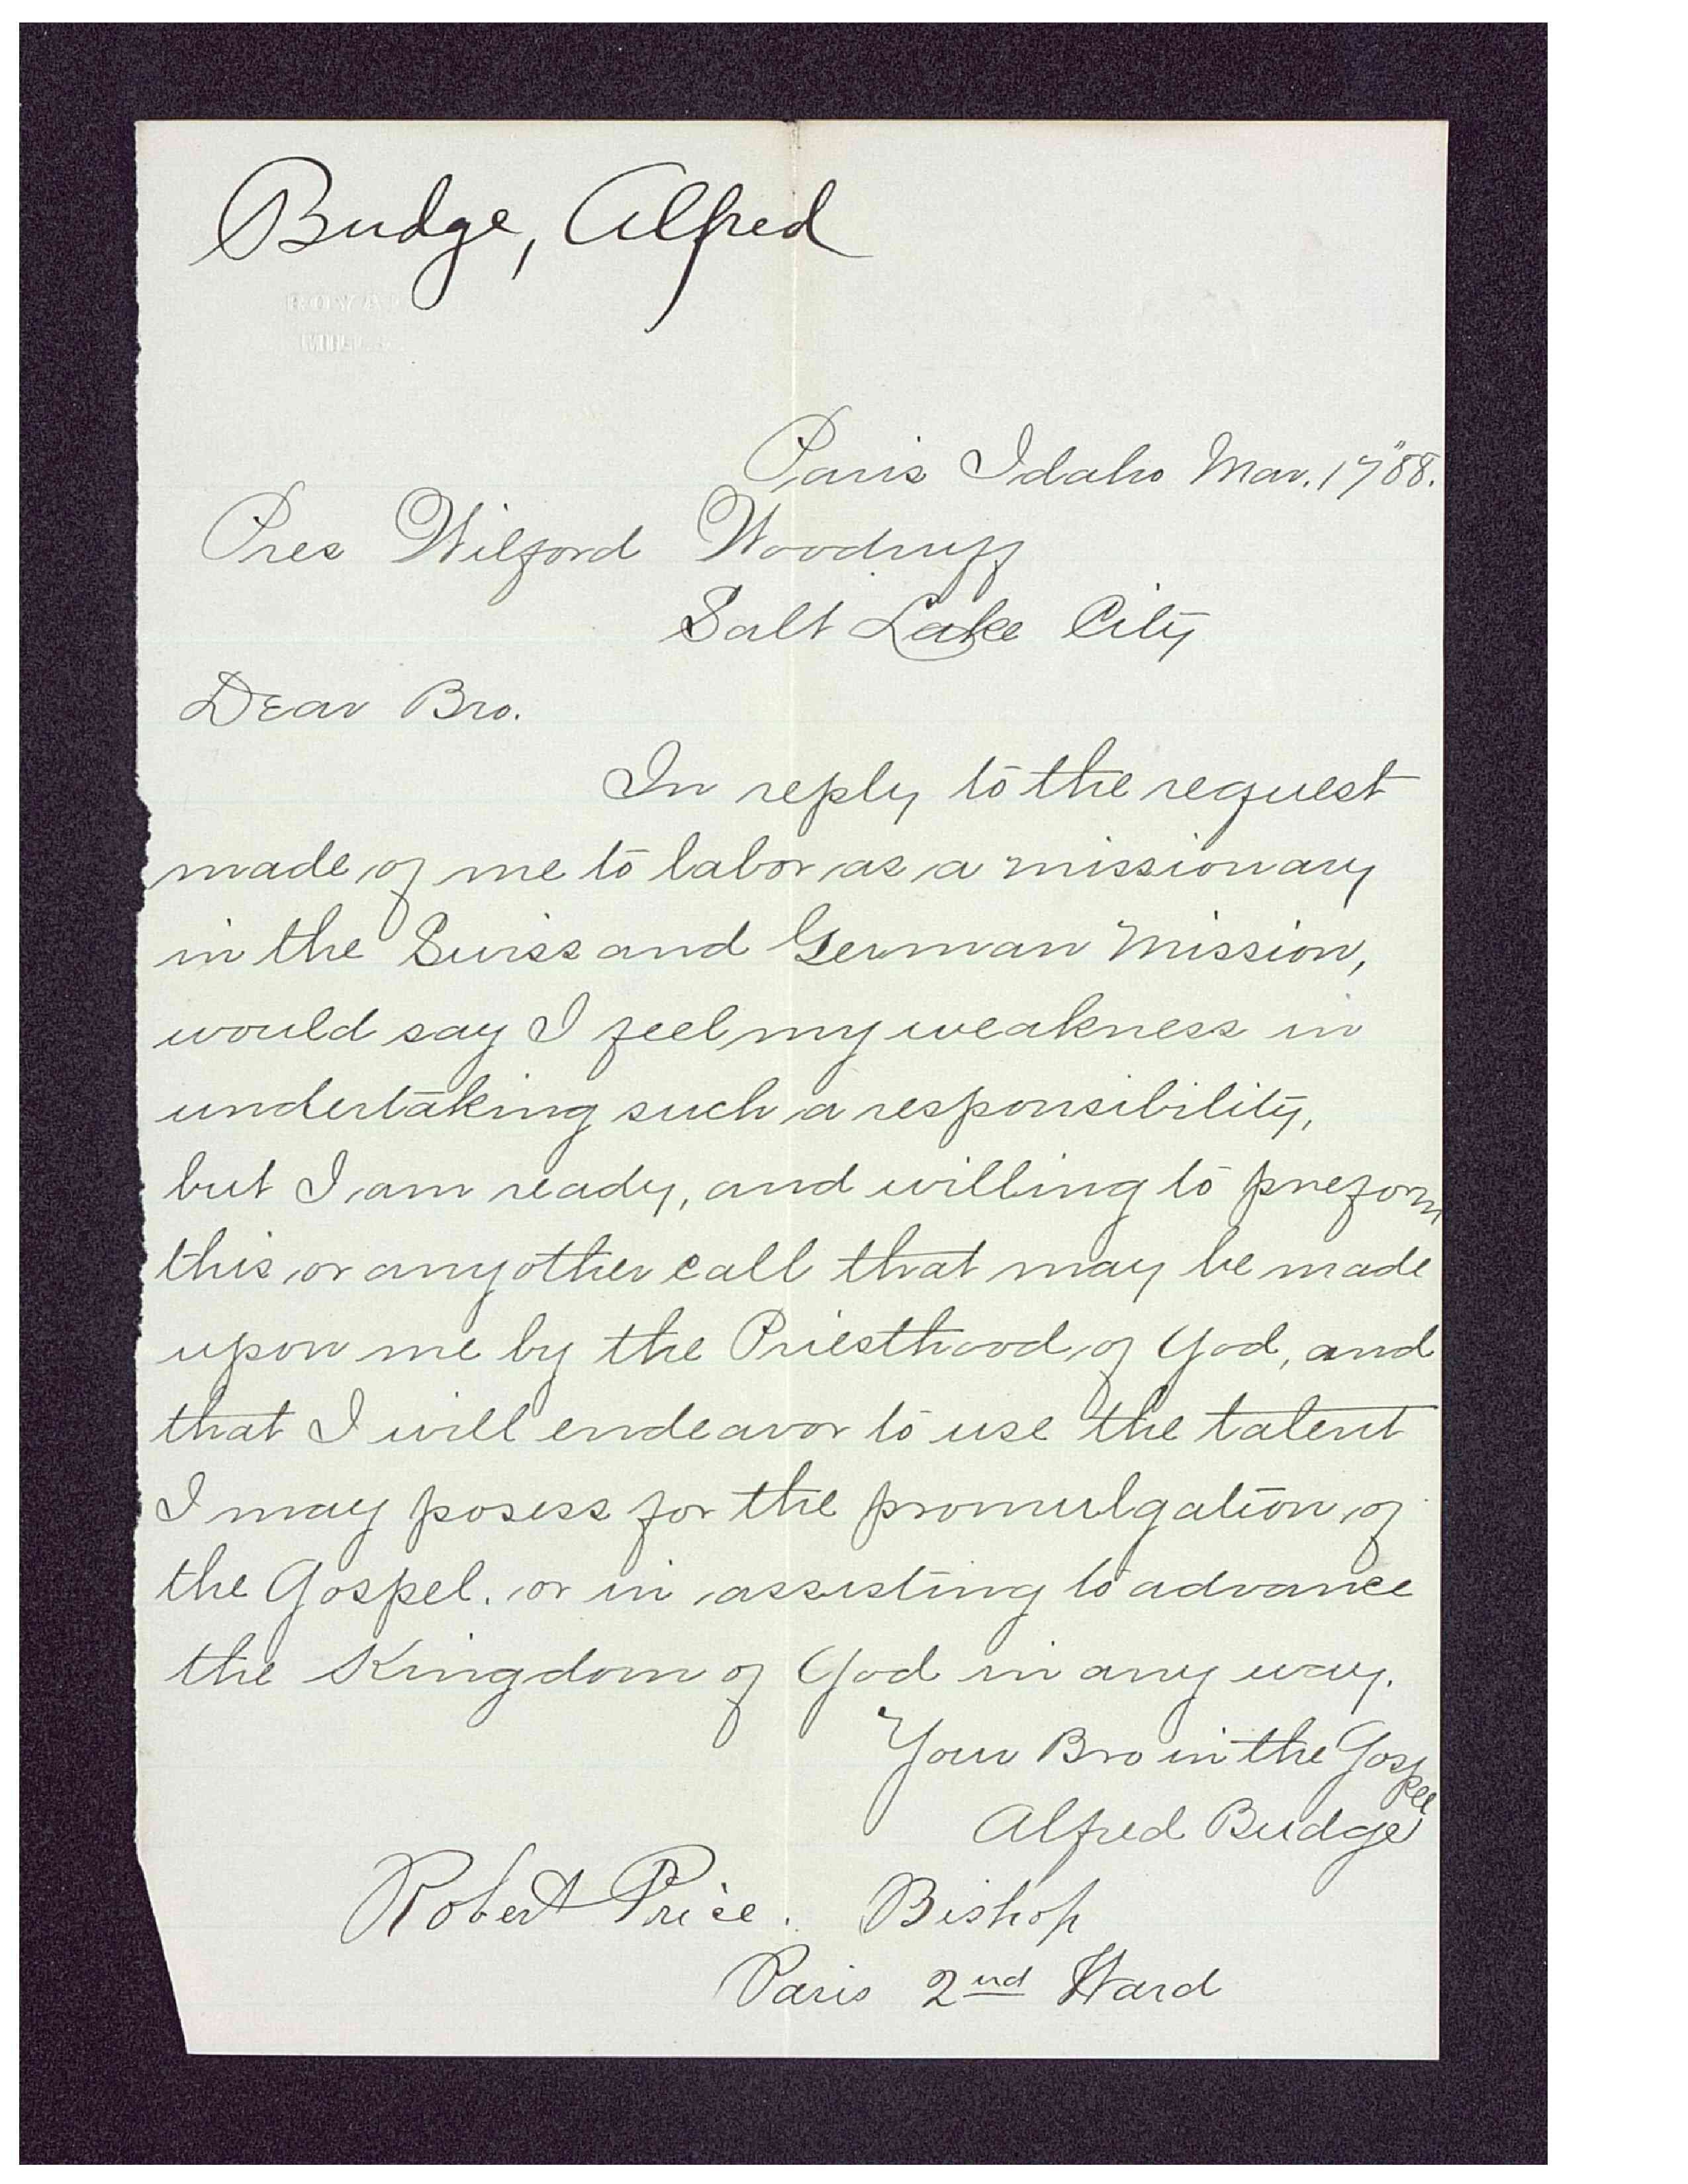 Budge, Alfred
ROYAL
MILLS
Paris Idaho Mar. 17" 88.
Pres Wilford Woodruff
Salt Lake City
Dear Bro.
In reply to the request
made of me to labor as a missionary
in the Swiss and German Mission,
would say I feel my weakness in
undertaking such a responsibility,
but I am ready, and willing to preform
this or any other call that may be made
upon me by the Priesthood of God, and
that I will endeavor to use the talent
I may posess for the promulgation of
the Gospel. or in assisting to advance
the Kingdom of God in any way.
Your Bro in the Gospel
Alfred Budge
Robert Price. Bishop
Paris 2nd Ward